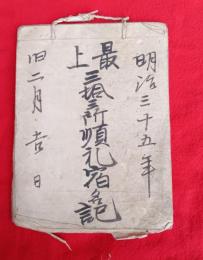 明治三十五年
最上三拾三所順礼宿名記
旧二月吉日